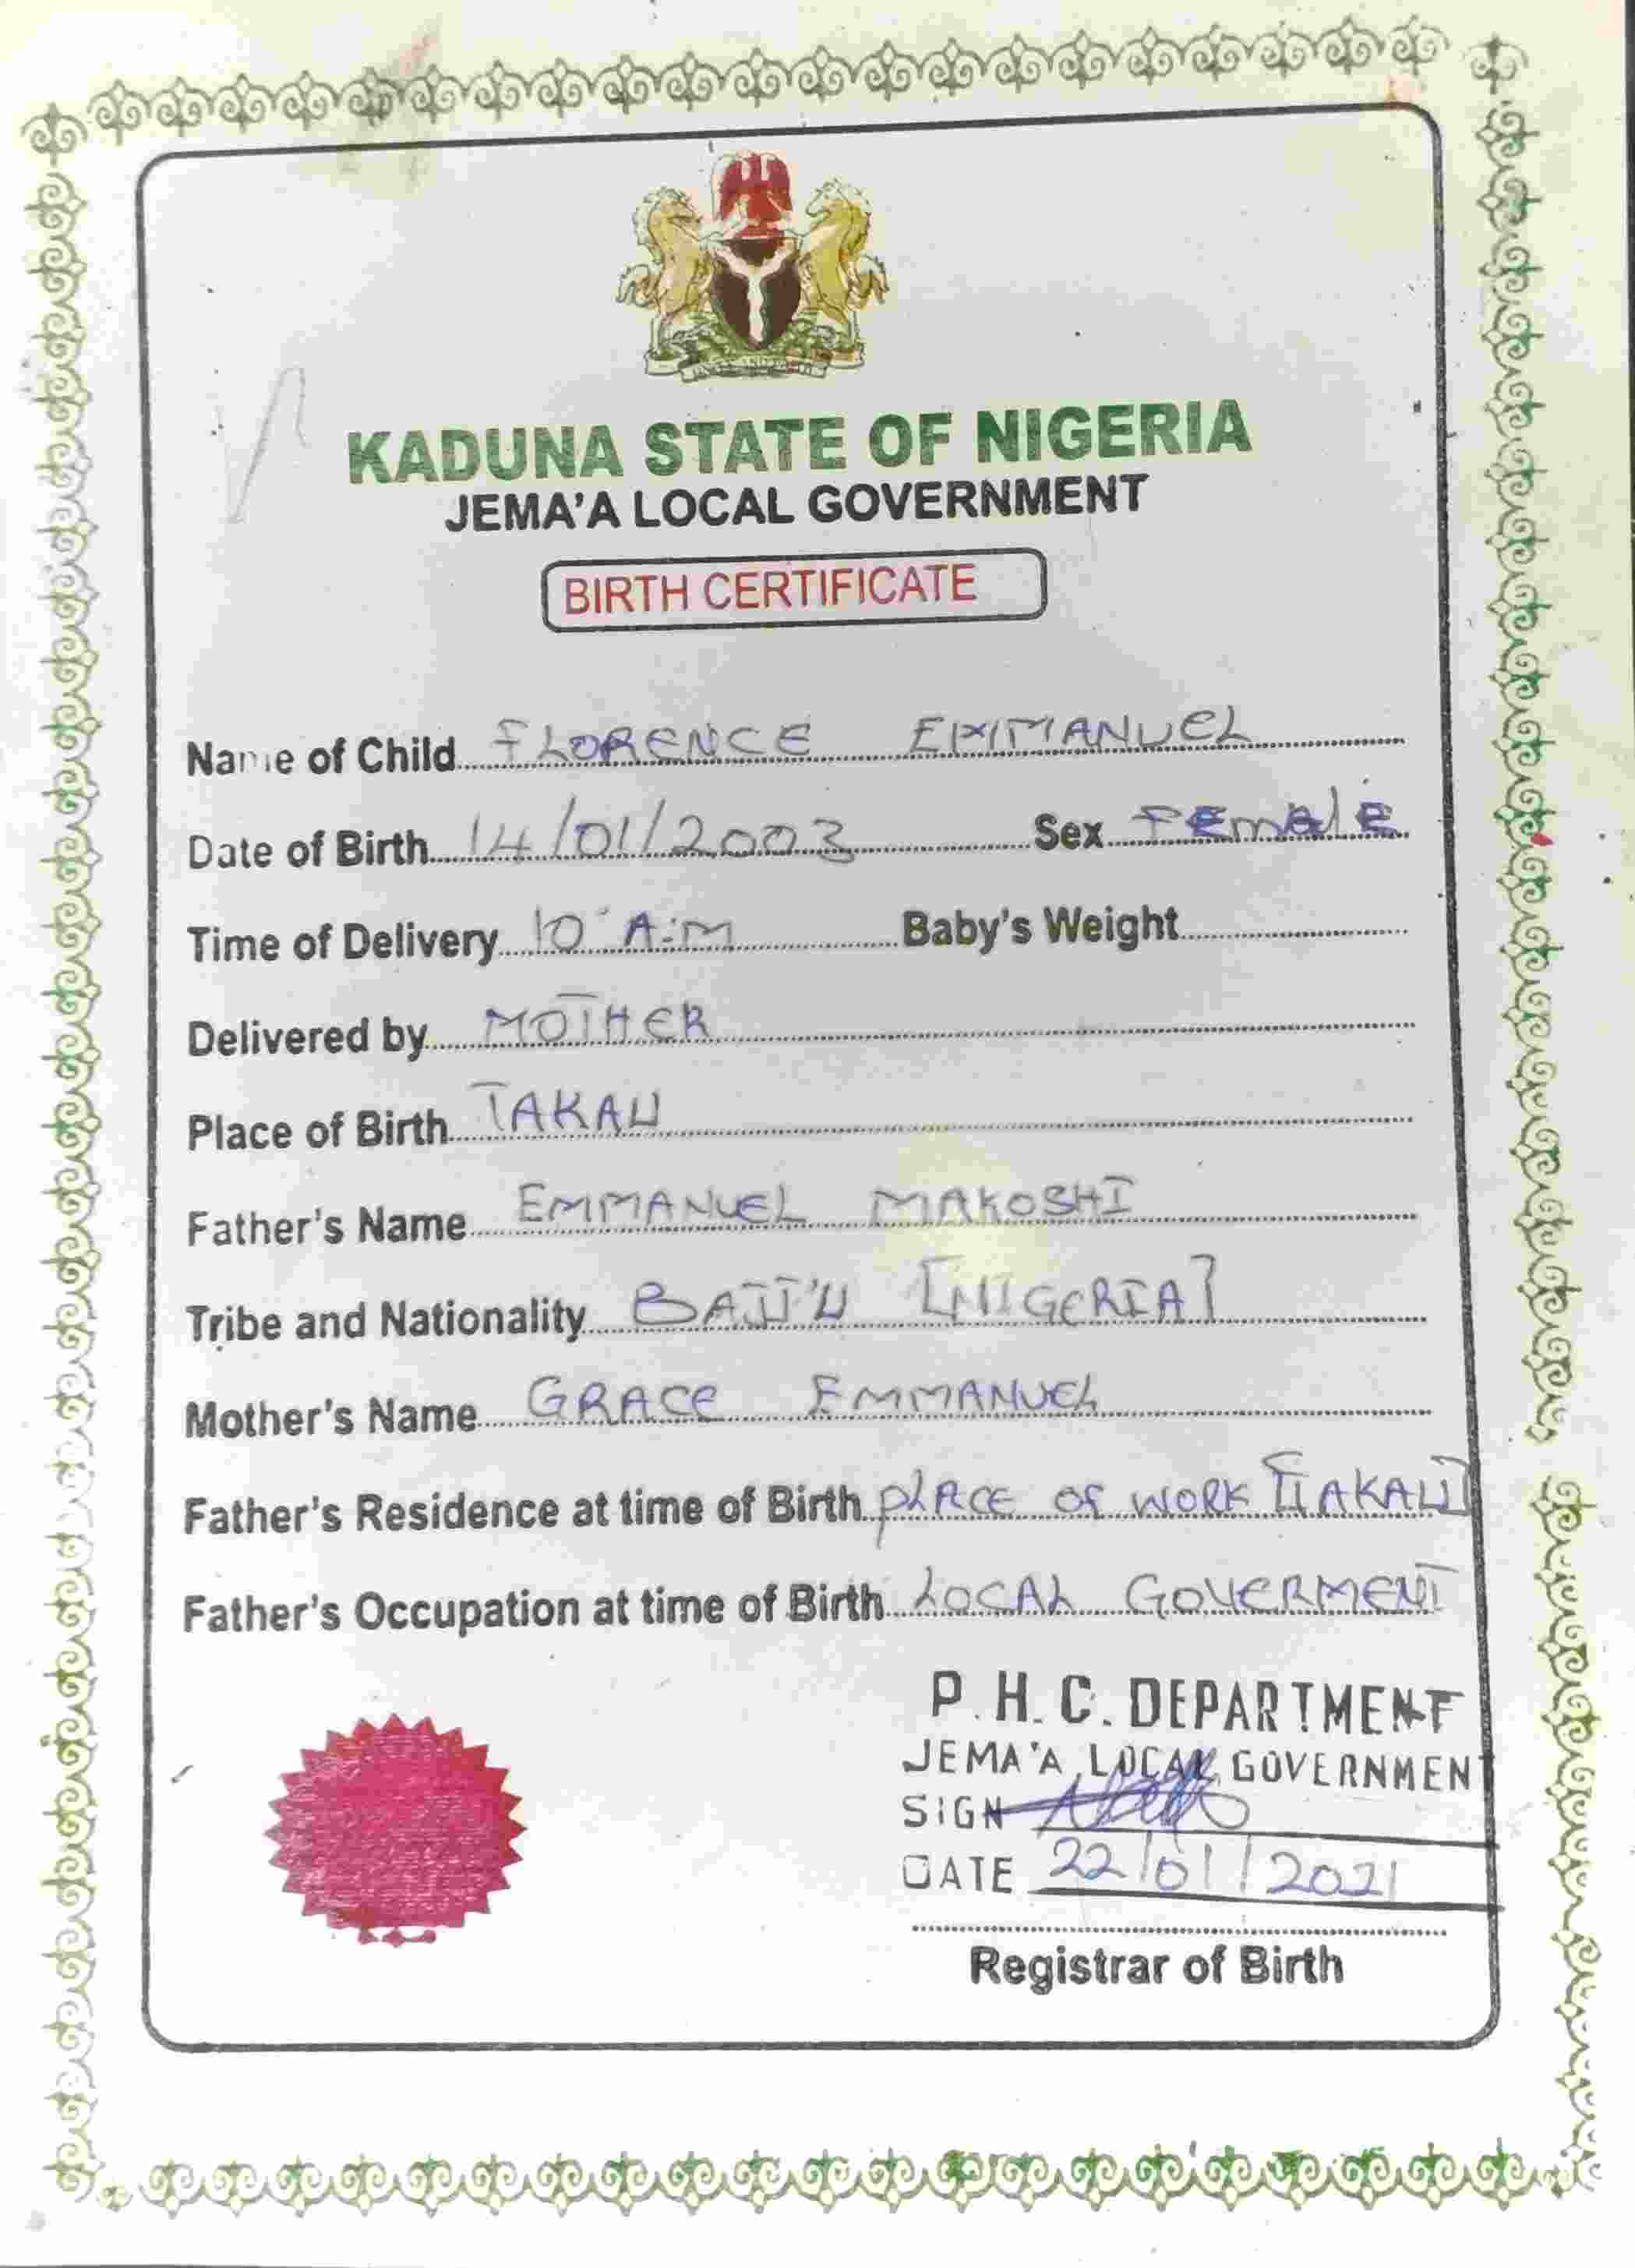 KADUNA STATE OF NIGERIA
JEMA'A LOCAL GOVERNMENT
BIRTH CERTIFICATE
Name of Child FLORENCE EMMANUEL
Date of Birth 14/01/2003 Sex FEmALE
Time of Delivery 10 A:M Baby's Weight
Delivered by MOTHER
Place of Birth TAKAU
Father's Name EMMANUEL MAKOSHI
Tribe and Nationality BAJJ'U [NIGERIA]
Mother's Name GRACE EMMANUEL
Father's Residence at time of Birth PLACE OF WORK [TAKAU]
Father's Occupation at time of Birth LOCAL GOVERMENT
P.H.C. DEPARTMENT
JEMA'A LOCAL GOVERNMENT
SIGN
DATE 22/01/2021
Registrar of Birth